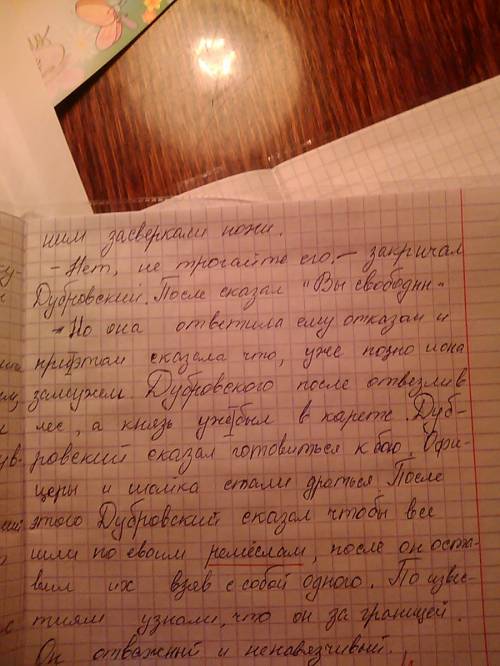 ним засверкали ножи.
- Нет, не трогайте его. - закричал
Дубровский. После сказал "Вы свободны".
- Но она ответила ему отказом и
приэтом сказала что, уже позно и она
замужем. Дубровского после отвезли в
лес, а князь уже был в карете. Дуб-
ровский сказал готовиться к бою. Офи-
церы и шайка стали драться. После
этого Дубровский сказал чтобы все
шли по своим ремёслам, после он оста-
вил их взяв с собой одного. По изве-
стиям узнали, что он за границей.
Он отважный и ненавязчивый.